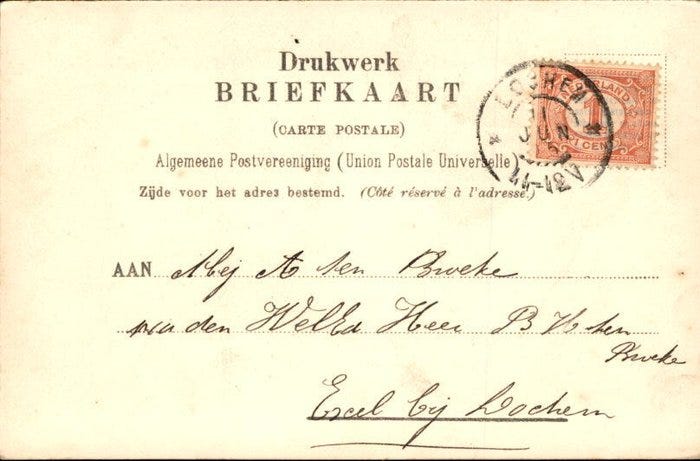 Drukwerk
BRIEFKAART
(CARTE POSTALE)
Algemeene Postvereeniging (Union Postale Universelle)
Zijde voor het adres bestemd. (Côté réservé à l'adresse)
LOCHEM
JUN
NEDERLAND
1
CENT
AAN Mej A ten Broeke
den WelEd Heer B H ten
Broeke
Exel bij Lochem